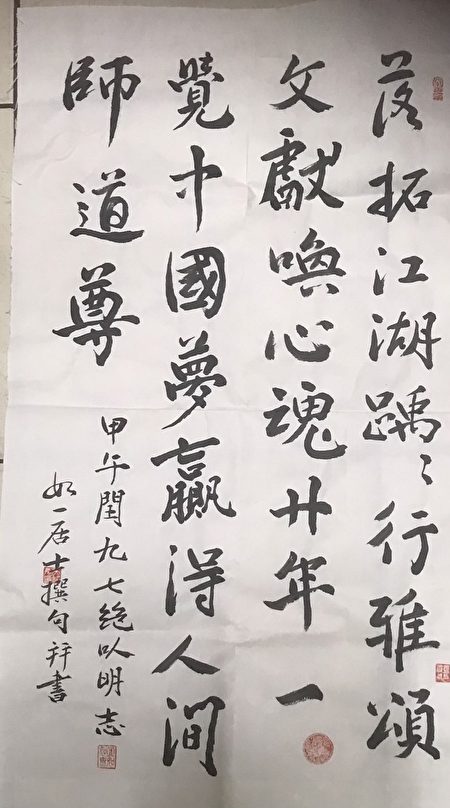 落拓江湖踽〻行雅頌
文獻喚心魂廿年一
覺中國夢贏得人間
師道尊
甲午閏九七絕以明志
如一居士撰句拜書